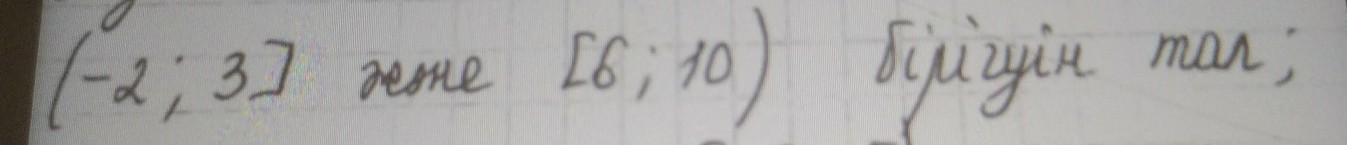 (-2; 3] және [6; 10) бірігуін тап;